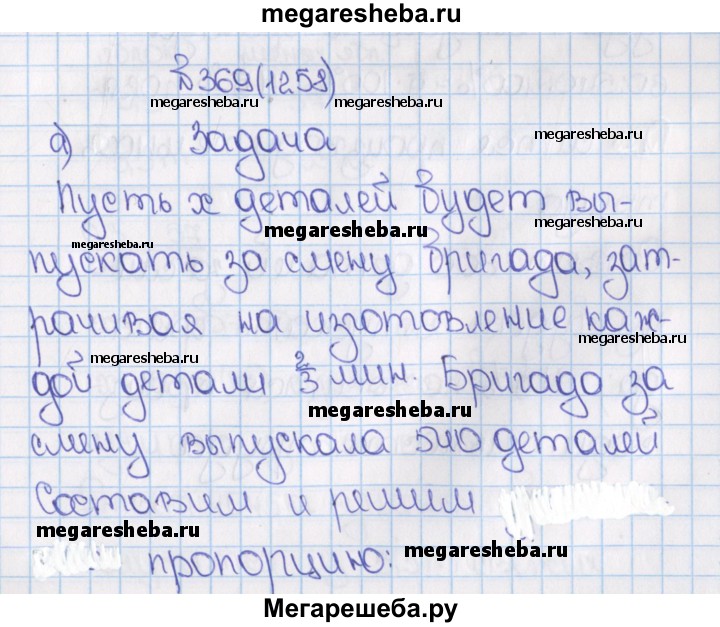 megaresheba.ru
№369(1258)
megaresheba.ru megaresheba.ru
а) Задача megaresheba.ru
Пусть х деталей будет вы-
megaresheba.ru megaresheba.ru
megaresheba.ru
пускать за смену бригада, зат-
рачивая на изготовление каж-
megaresheba.ru megaresheba.ru
дой детали 2/3 мин. Бригада за
megaresheba.ru
смену выпускала 540 деталей
Составим и решим
megaresheba.ru
пропорцию: megaresheba.ru
Мегарешеба.ру